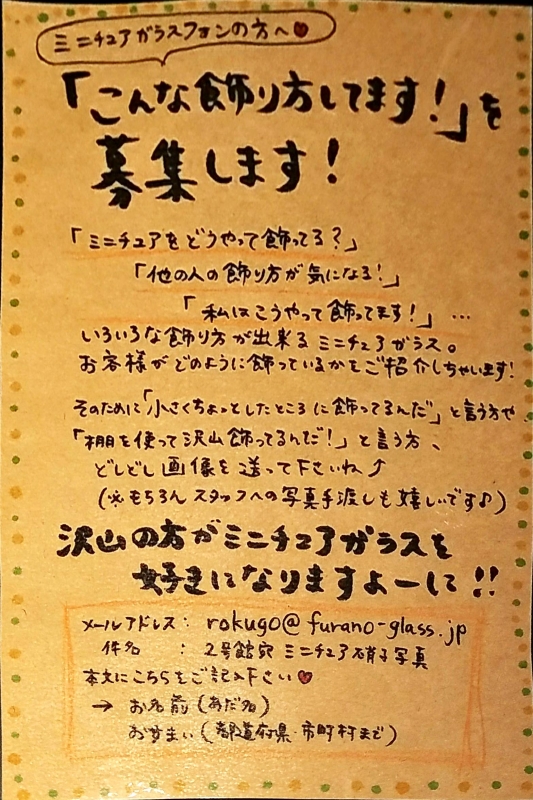 ミニチュアガラスファンの方へ♥
「こんな飾り方してます!」を
募集します!
「ミニチュアをどうやって飾ってる?」
「他の人の飾り方が気になる!」
「私はこうやって飾ってます!」…
いろいろな飾り方が出来るミニチュアガラス。
お客様がどのように飾っているかをご紹介しちゃいます!
そのために「小さくちょっとしたところに飾ってるんだ」と言う方や、
「棚を使って沢山飾ってるんだ!」と言う方、
どしどし画像を送って下さいね⤴
(※もちろんスタッフへの写真手渡しも嬉しいです♪)
沢山の方がミニチュアガラスを
好きになりますよーに!!
メールアドレス: rokugo@furano-glass.jp
件名 : 2号館宛 ミニチュア硝子写真
本文にこちらをご記入下さい♥
→ お名前(あだ名)
お住まい(都道府県・市町村まで)